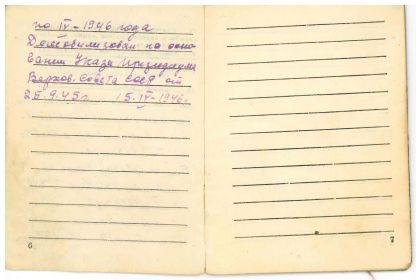 по IV–1946 года
Демобилизован на осно-
вании Указа Президиума
Верхов. Совета СССР от
25.9.45г. 15.IV–1946г.
6
7